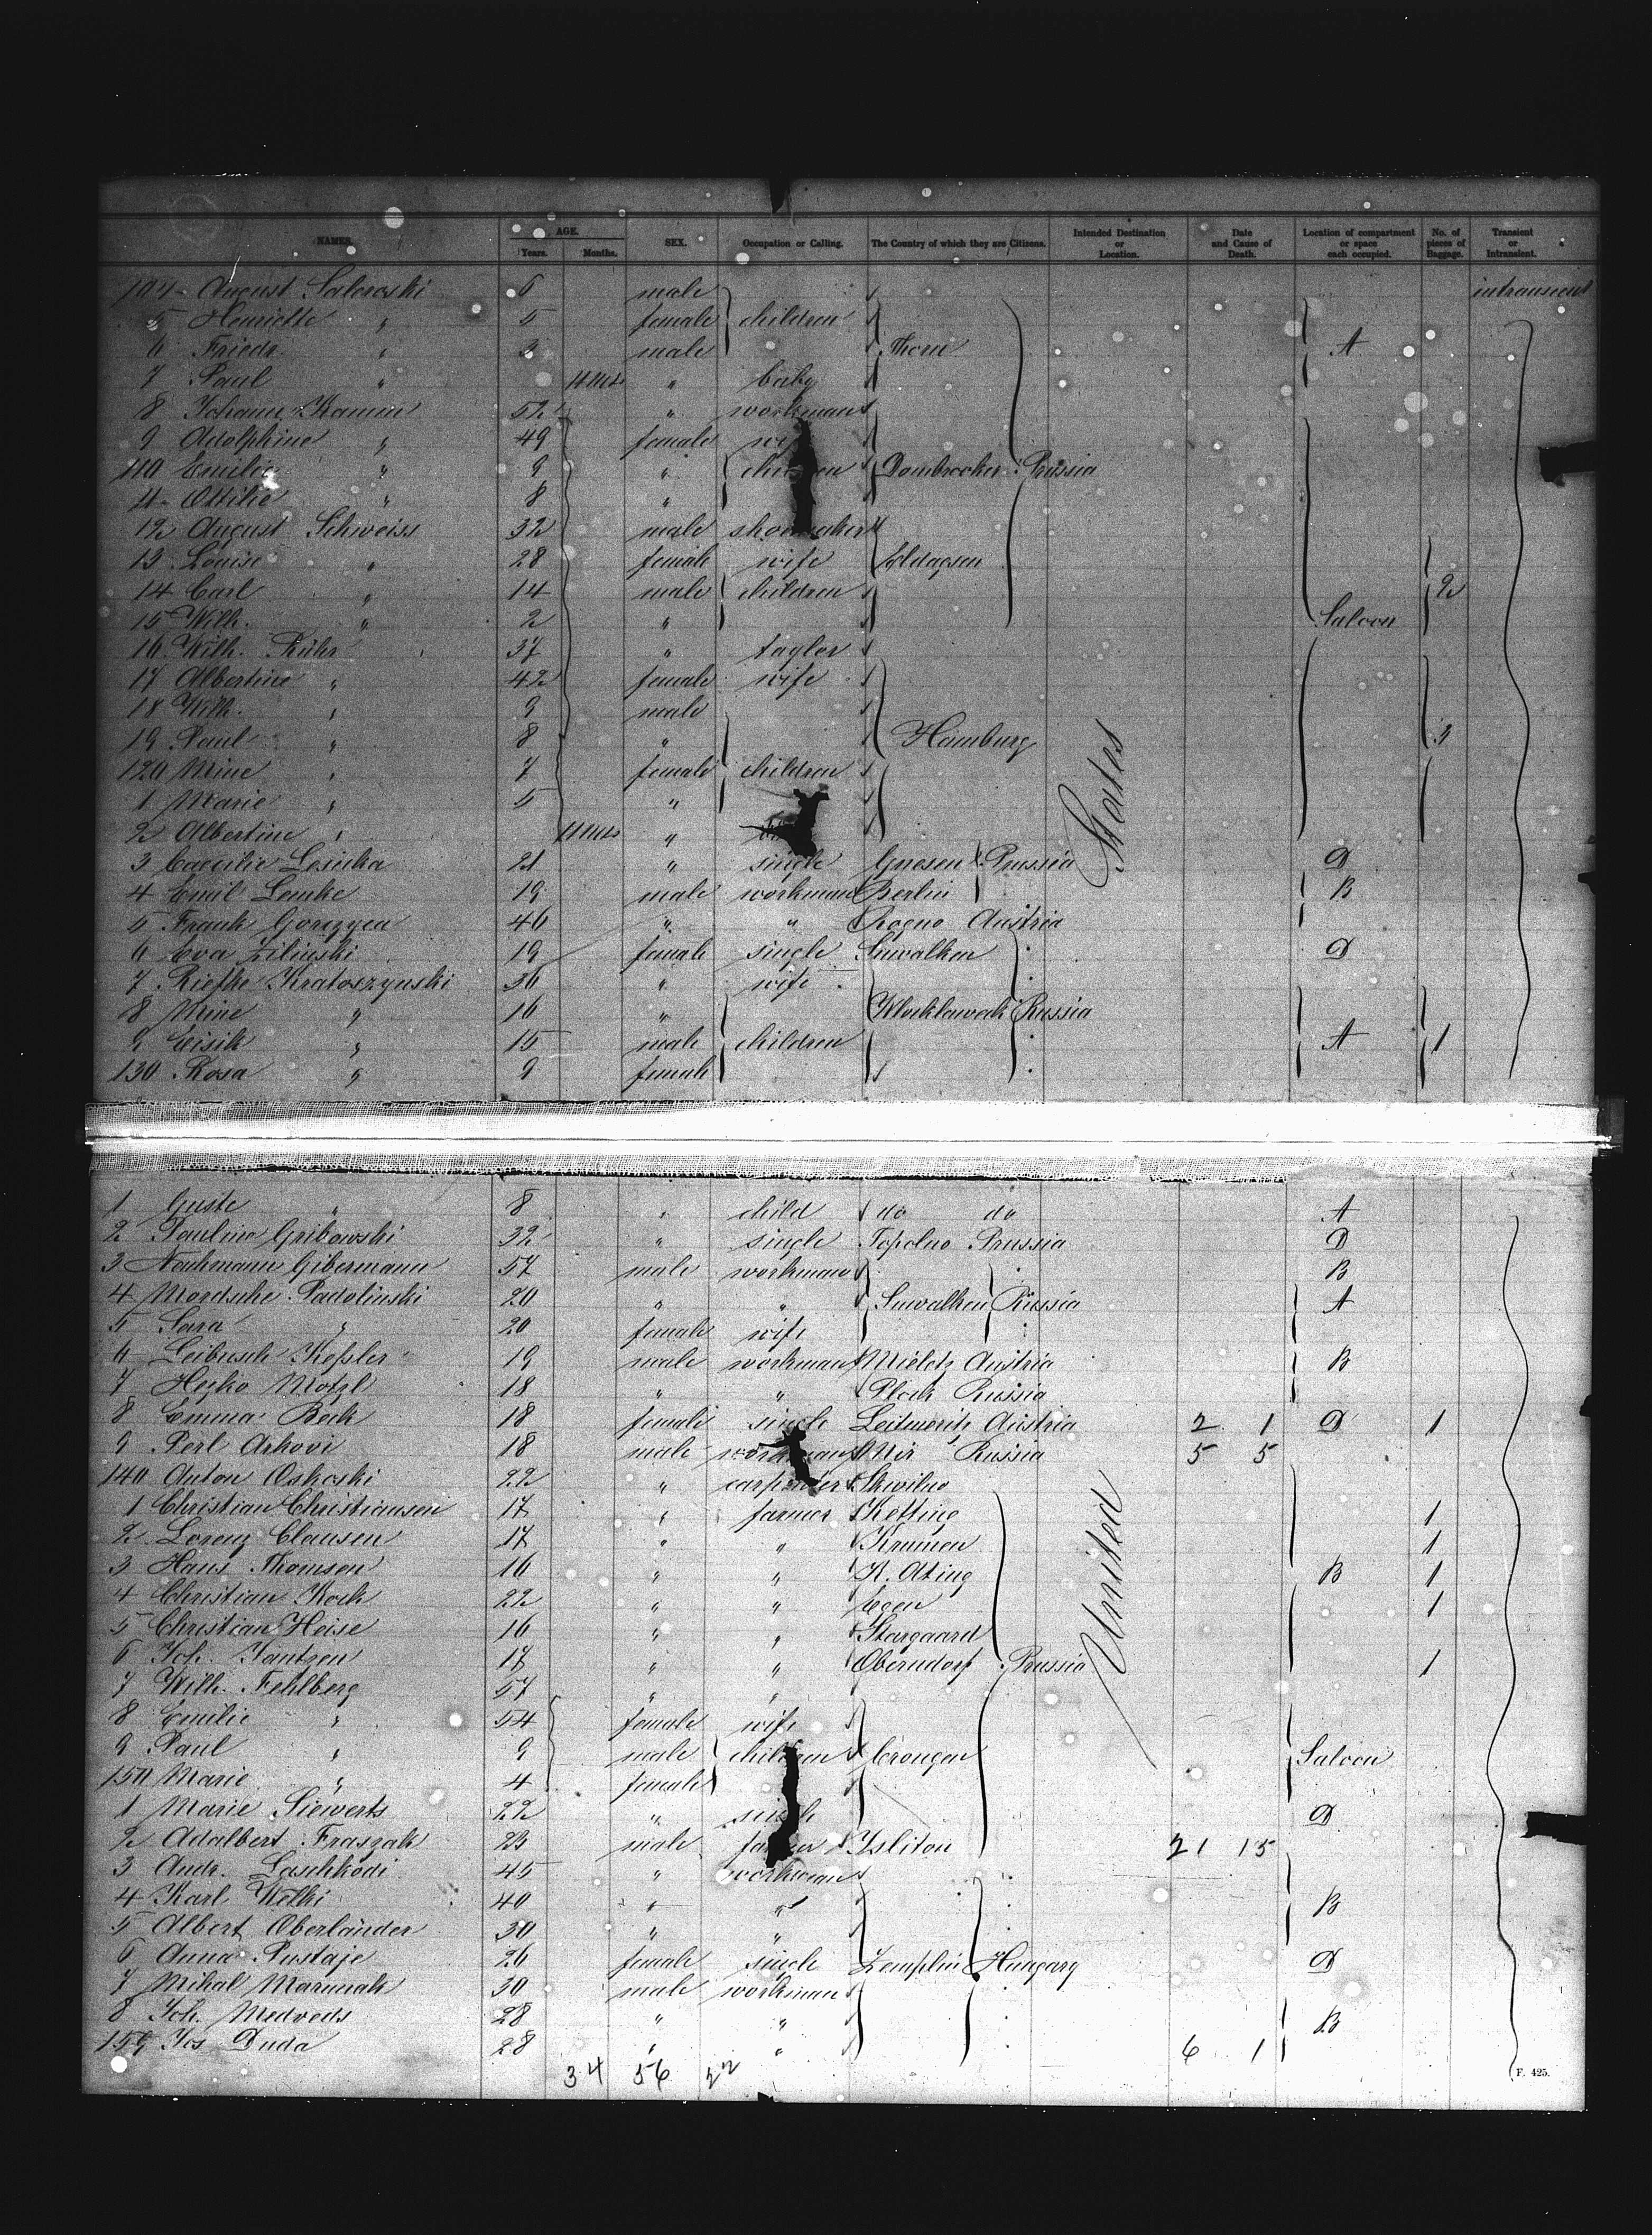 NAMES. AGE. Years. Months. SEX. Occupation or Calling. The Country of which they are Citizens. Intended Destination or Location. Date and Cause of Death. Location of compartment or space each occupied. No. of pieces of Baggage. Transient or Intransient.
104 August 6 male intransient
5 Henriette " 5 female children
6 Friedr. " 3 male Thorn A
7 Paul " 11 Mts " baby
8 Johann Kamin 52 " workman
9 Adolphine " 49 female wife
110 Emilie " 9 " children Prussia
11 Ottilie " 8 "
12 August Schweiss 32 male shoemaker
13 Louise " 28 female wife Eldagsen
14 Carl " 14 male children 2
15 Wilh. " 2 " Saloon
16 Wilh. Kühr 37 " taylor
17 Albertine " 42 female wife
18 Wilh. " 9 male
19 Paul " 8 " Hamburg 3
120 Mine " 7 female children
1 Marie " 5 "
2 Albertine " 11 Mts "
3 Caecilie Lesinka 21 " single Gnesen Prussia D
4 Emil Lemke 19 male workman Berlin B
5 Frank Gorzyca 46 " " Rogno Austria
6 Eva Zilinski 19 female single Suwalken D
7 Riefke Kratoszynski 36 " wife
8 Mine " 16 " Russia
9 Eisik " 15 male children A 1
130 Rosa " 9 female
States
1 Guste " 8 " child do do A
2 Pauline Gribowski 32 " single Topolno Prussia D
3 Nachmann Gibermann 57 male workman B
4 Mordsche Padolinski 20 " " Suwalken Russia A
5 Sara " 20 female wife
6 Leibusch Kessler 19 male workman Mieletz Austria B
7 Hejko Motzl 18 " " Plock Russia
8 Emma Beck 18 female single Leitmeritz Austria 2 1 D 1
9 Perl Arkovi 18 male workman Mir Russia 5 5
140 Anton Oskoski 22 " carpenter Skwilno
1 Christian Christiansen 17 " farmer Ketting 1
2 Lorenz Clausen 17 " " 1
3 Hans Thomsen 16 " " B 1
4 Christian Kock 22 " " Egen 1
5 Christian Heise 16 " " Stargaard
6 Joh. Jantzen 17 " " Oberndorf Prussia 1
7 Wilh. Fehlberg 57 " "
8 Emilie " 54 female wife
9 Paul " 9 male children Saloon
150 Marie " 4 female
1 Marie Siewerts 22 " single D
2 Adalbert Fraszak 23 male farmer 21 15
3 Andr. Laschkodi 45 " workman
4 Karl Welki 40 " " B
5 Albert Oberländer 30 " "
6 Anna Pustaje 26 female single Zemplin Hungary D
7 Mihal Marunak 30 male workman
8 Joh. Medveds 28 " " B
159 Jos Duda 28 " " 6 1
United
34 56 22
F. 425.